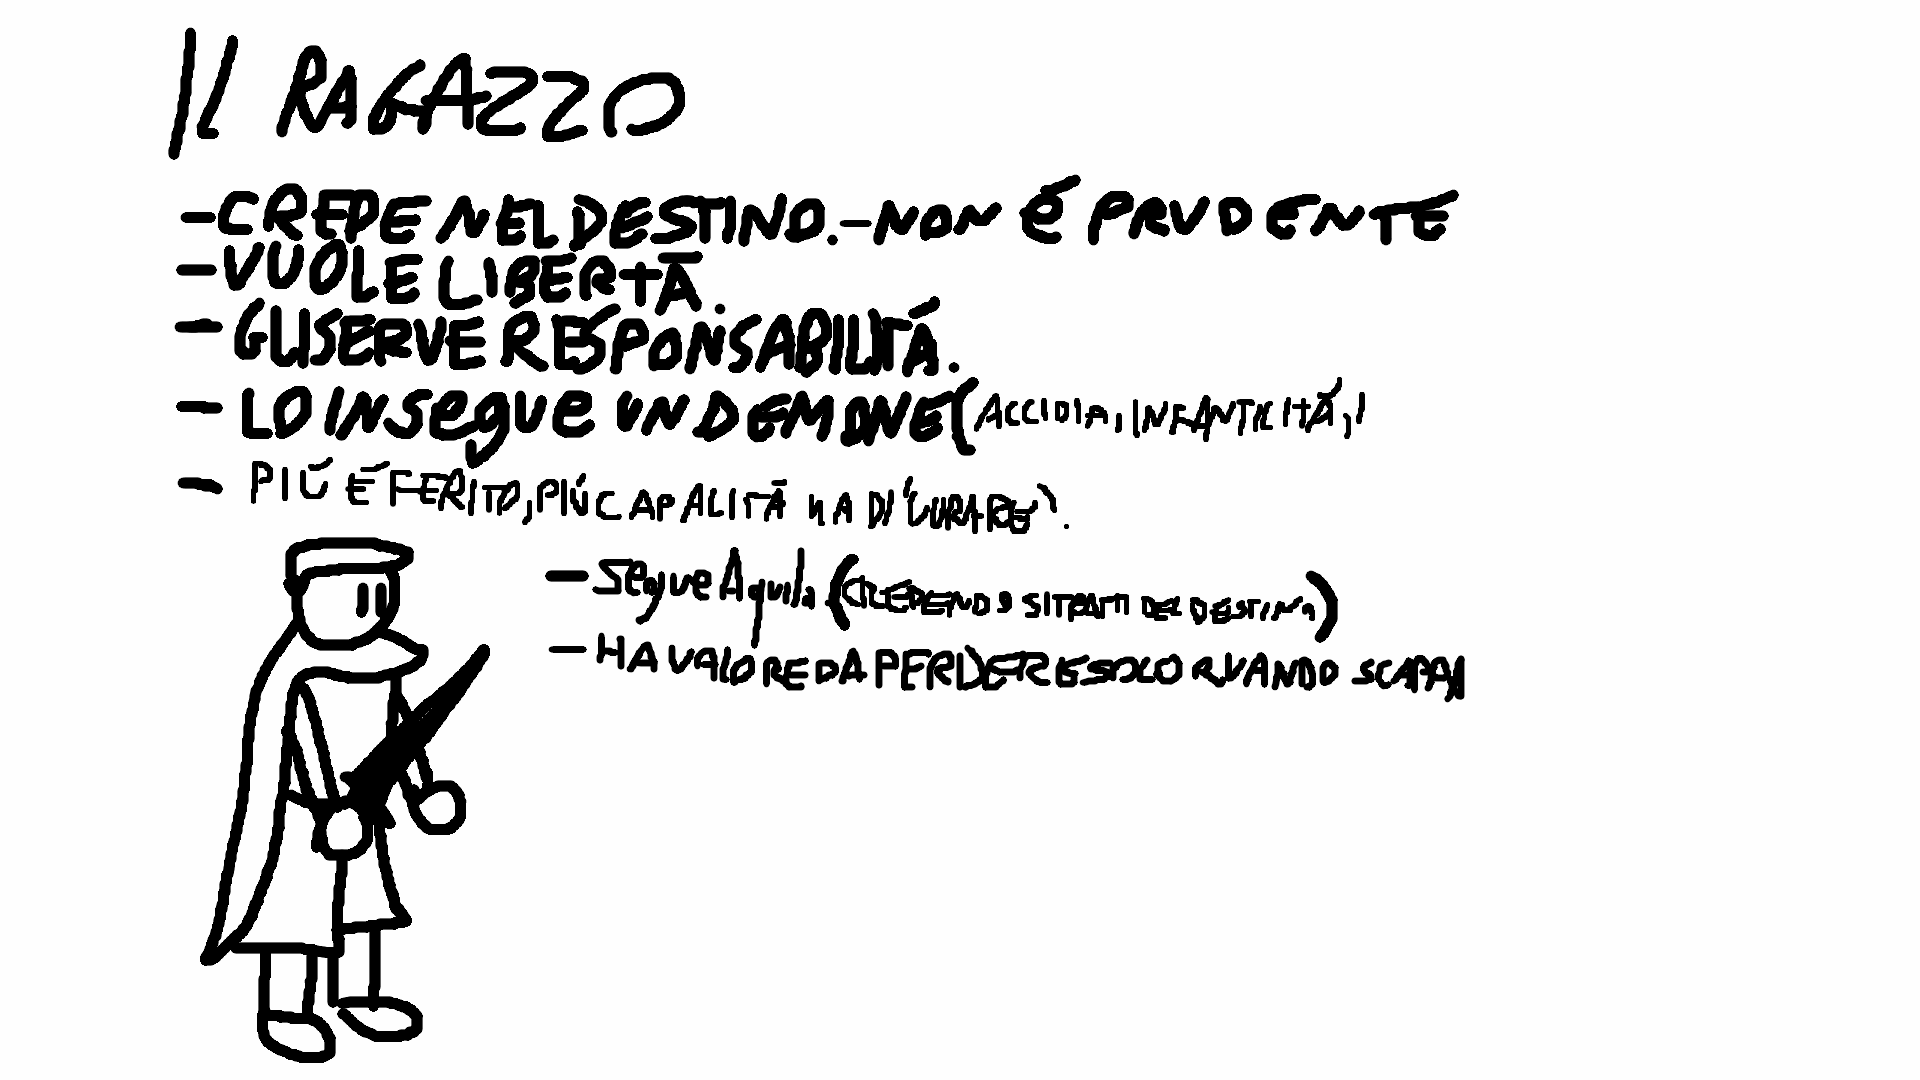 IL RAGAZZO
- CREDE NEL DESTINO. - NON É PRUDENTE
- VUOLE LIBERTÀ.
- GLI SERVE RESPONSABILITÁ.
- LO INSEGUE UN DEMONE (ACCIDIA, INFANTILITÁ,)
- PIÚ É FERITO, PIÚ CAPALITÀ HA DI "CURARE".
- Segue Aquila (CREDENDO SI TRATTI DEL DESTINO)
- HA VALORE DA PERDERE SOLO QUANDO SCAPPA